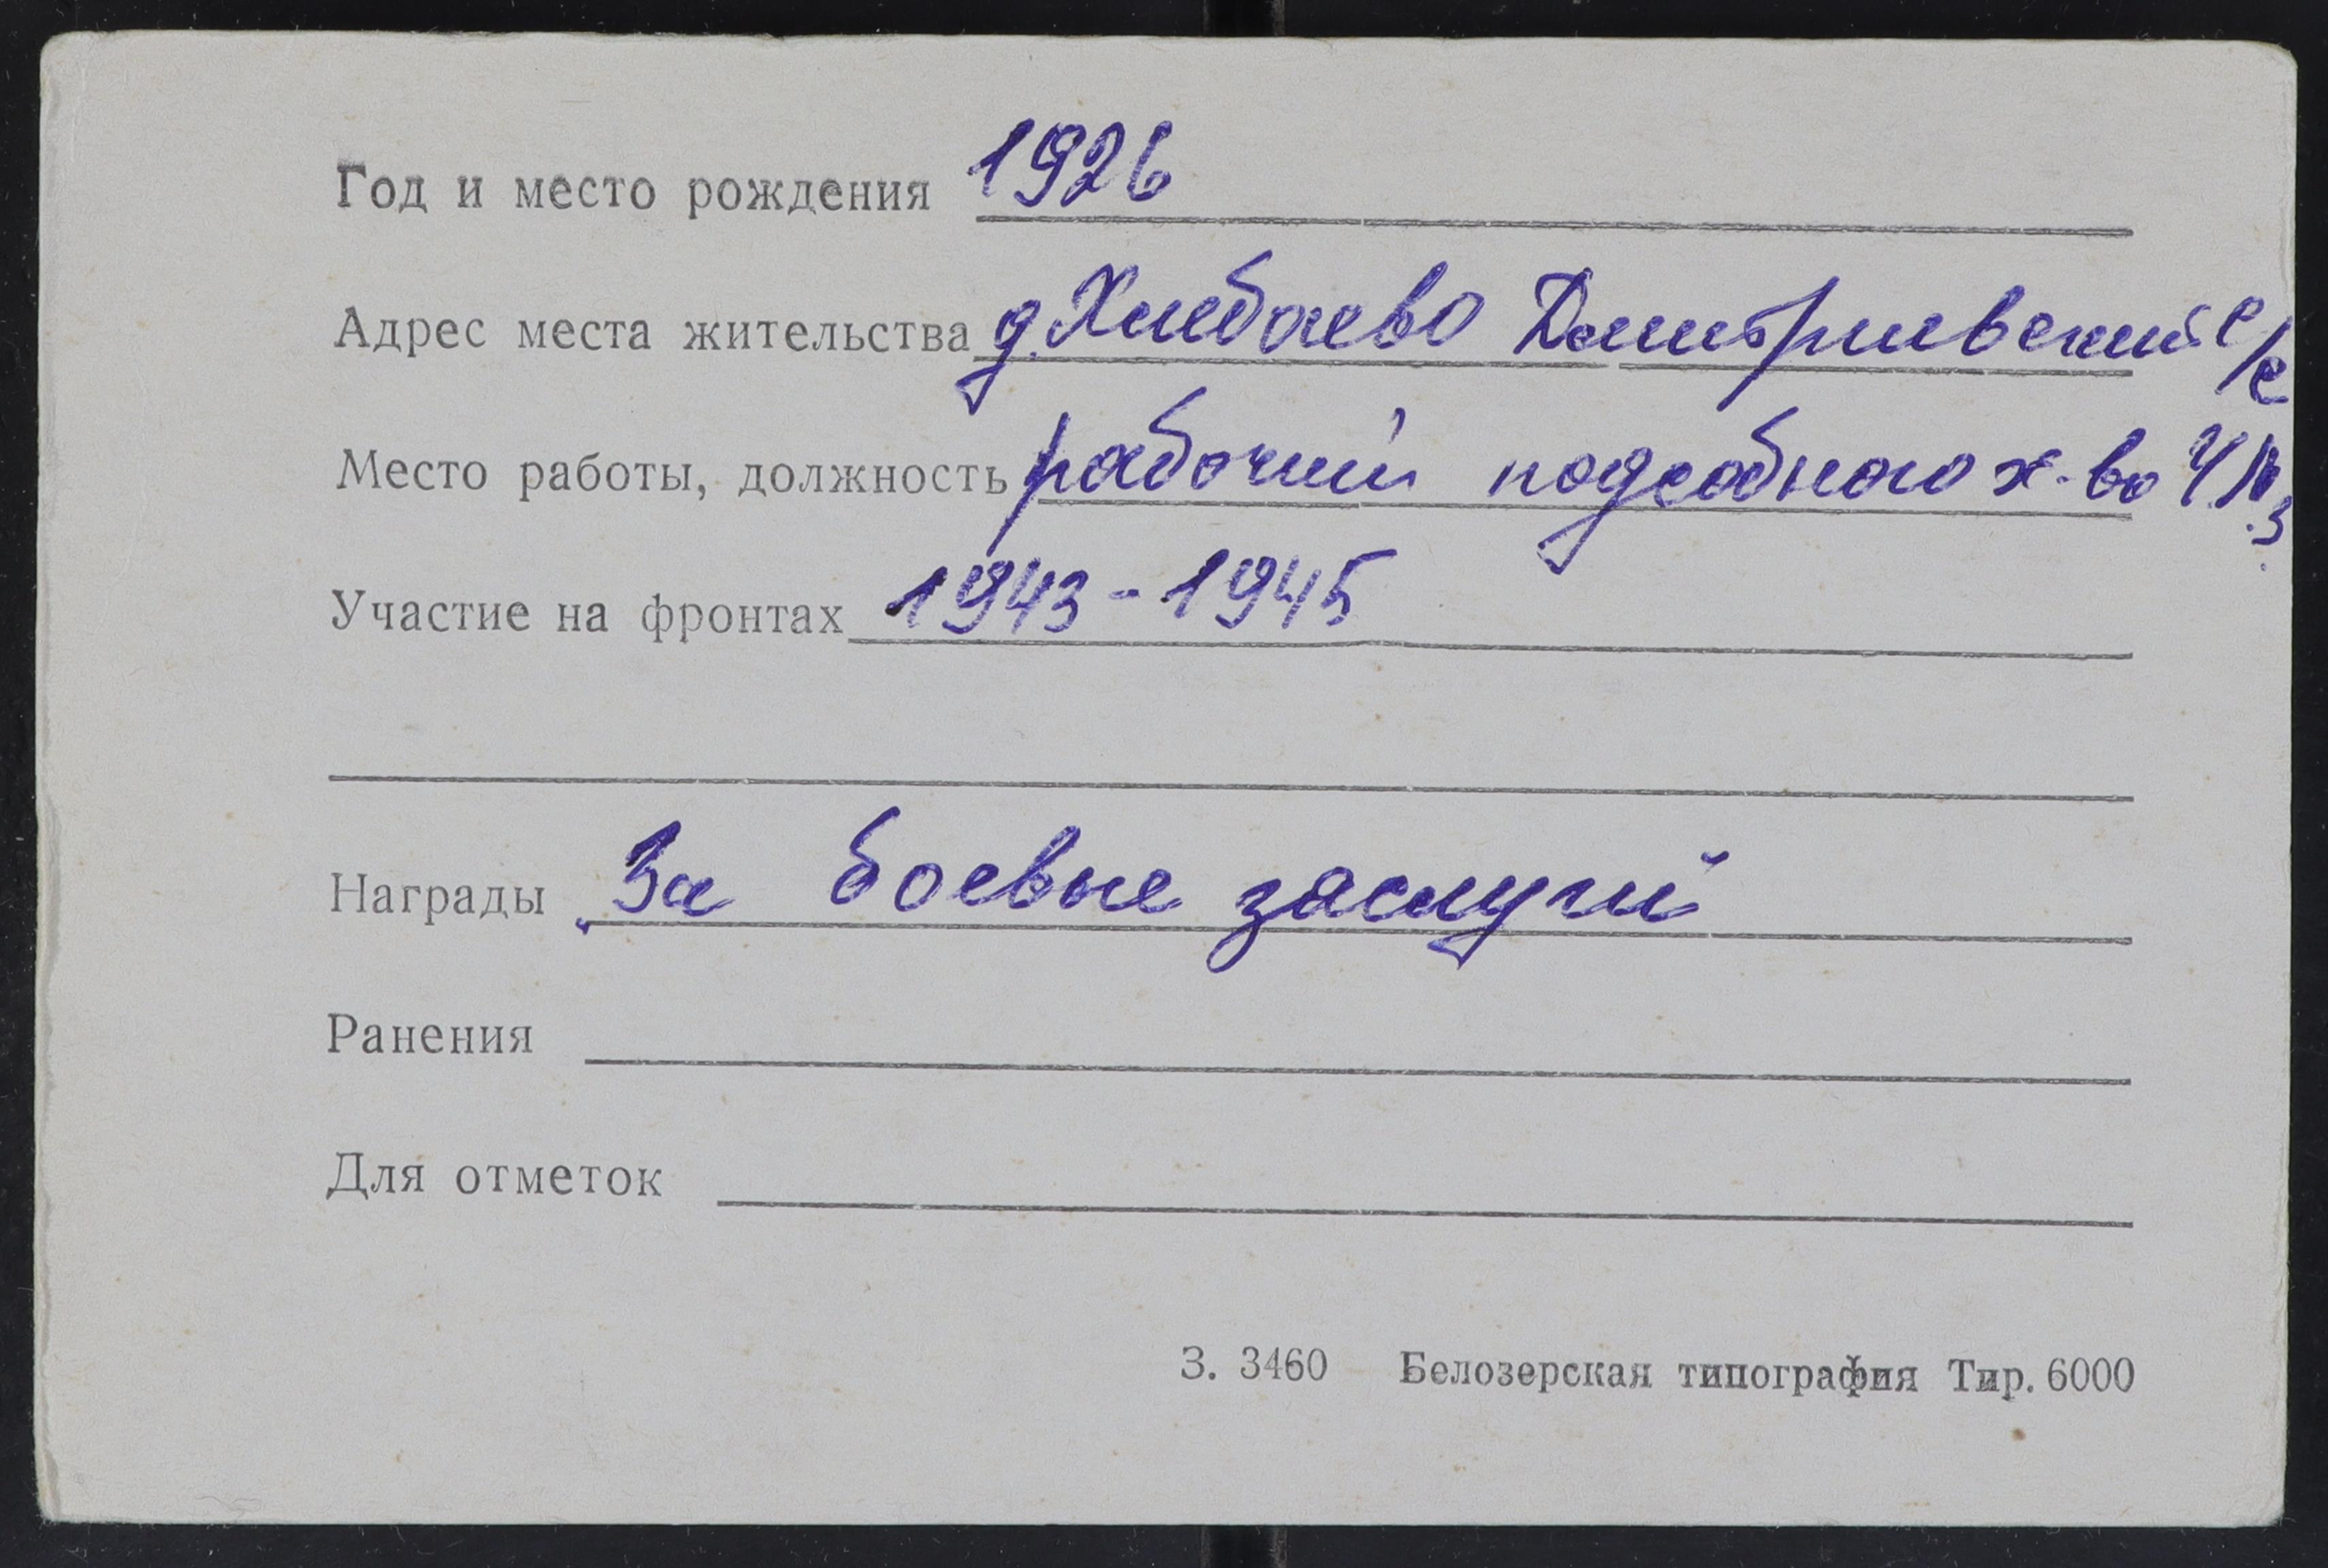 Год и место рождения 1926
Адрес места жительства д. Хлебаево Дмитриевский с/с
Место работы, должность рабочий подсобного х-ва ЧМЗ
Участие на фронтах 1943-1945
Награды За боевые заслуги
Ранения
Для отметок
З. 3460 Белозерская типография Тир. 6000